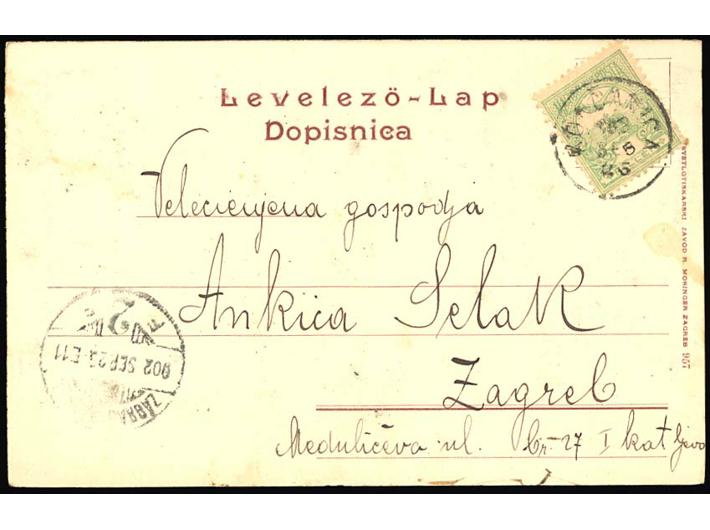 Levelezö-Lap
Dopisnica
Velecienjena gospodja
Ankica Selak
Zagreb
Medulićeva ul. br. 27 I kat ljevo
902 SEP 23 E 11
ZÁGRÁB
SVETLOTISKARSKI ZAVOD R. MOSINGER ZAGREB 957